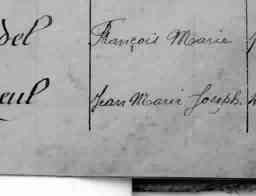 del François Marie
eul Jean Marie Joseph